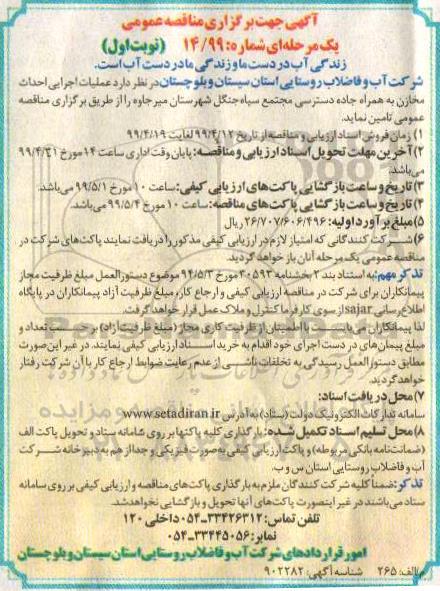 آگهی جهت برگزاری مناقصه عمومی
یک مرحله‌ای شماره: ۱۴/۹۹ (نوبت اول)
زندگی آب در دست ما و زندگی ما در دست آب است.
شرکت آب و فاضلاب روستایی استان سیستان و بلوچستان در نظر دارد عملیات اجرایی احداث
مخازن به همراه جاده دسترسی مجتمع سیاه جنگل شهرستان میرجاوه را از طریق برگزاری مناقصه
عمومی تامین نماید.
۱) زمان فروش اسناد ارزیابی و مناقصه از تاریخ ۹۹/۴/۱۲ لغایت ۹۹/۴/۱۹
۲) آخرین مهلت تحویل اسناد ارزیابی و مناقصه: پایان وقت اداری ساعت ۱۴ مورخ ۹۹/۴/۳۱ می
باشد.
۳) تاریخ و ساعت بازگشایی پاکت‌های ارزیابی کیفی: ساعت ۱۰ مورخ ۹۹/۵/۱ می‌باشد.
۴) تاریخ و ساعت بازگشایی پاکت‌های مناقصه: ساعت ۱۰ مورخ ۹۹/۵/۴ می‌باشد.
۵) مبلغ برآورد اولیه: ۲۶/۷۰۷/۶۰۶/۴۹۶ ریال
۶) شرکت کنندگانی که امتیاز لازم در ارزیابی کیفی مذکور را دریافت نمایند پاکت‌های شرکت در
مناقصه عمومی یک مرحله آنان باز خواهد گردید.
تذکر مهم: به استناد بند ۲ بخشنامه ۴۰۵۹۳ مورخ ۹۴/۵/۳ موضوع دستورالعمل مبلغ ظرفیت مجاز
پیمانکاران برای شرکت در مناقصه ارزیابی کیفی و ارجاع کار، مبلغ ظرفیت آزاد پیمانکاران در پایگاه
اطلاع‌رسانی sajar از سوی کارفرما کنترل و ملاک عمل قرار خواهد گرفت.
لذا پیمانکاران می‌بایست با اطمینان از ظرفیت کاری مجاز (مبلغ ظرفیت آزاد) بر حسب تعداد و
مبلغ پیمان‌های در دست اجرای خود اقدام به خرید اسناد ارزیابی کیفی نمایند. در غیر این صورت
مطابق دستورالعمل رسیدگی به تخلفات ناشی از عدم رعایت ضوابط ارجاع کار با آن شرکت رفتار
خواهد گردید.
۷) محل دریافت اسناد:
سامانه تدارکات الکترونیک دولت (ستاد) به آدرس www.setadiran.ir
۸) محل تسلیم اسناد تکمیل شده: بارگذاری کلیه پاکتها بر روی سامانه ستاد و تحویل پاکت الف
(ضمانت‌نامه بانکی مربوطه) و پاکت ارزیابی کیفی به صورت فیزیکی و جدا از هم به دبیرخانه شرکت
آب و فاضلاب روستایی استان س و ب.
تذکر: ضمنا کلیه شرکت کنندگان ملزم به بارگذاری پاکت‌های مناقصه و ارزیابی کیفی بر روی سامانه
ستاد می‌باشند در غیر اینصورت پاکت‌های آنها تحویل و بازگشایی نخواهد شد.
تلفن تماس: ۳۳۴۲۶۳۱۲-۰۵۴ داخلی ۱۲۰
نمابر: ۳۳۴۴۵۰۵۶-۰۵۴
امور قراردادهای شرکت آب و فاضلاب روستایی استان سیستان و بلوچستان
م.الف: ۲۶۵ شناسه آگهی: ۹۰۲۲۸۲